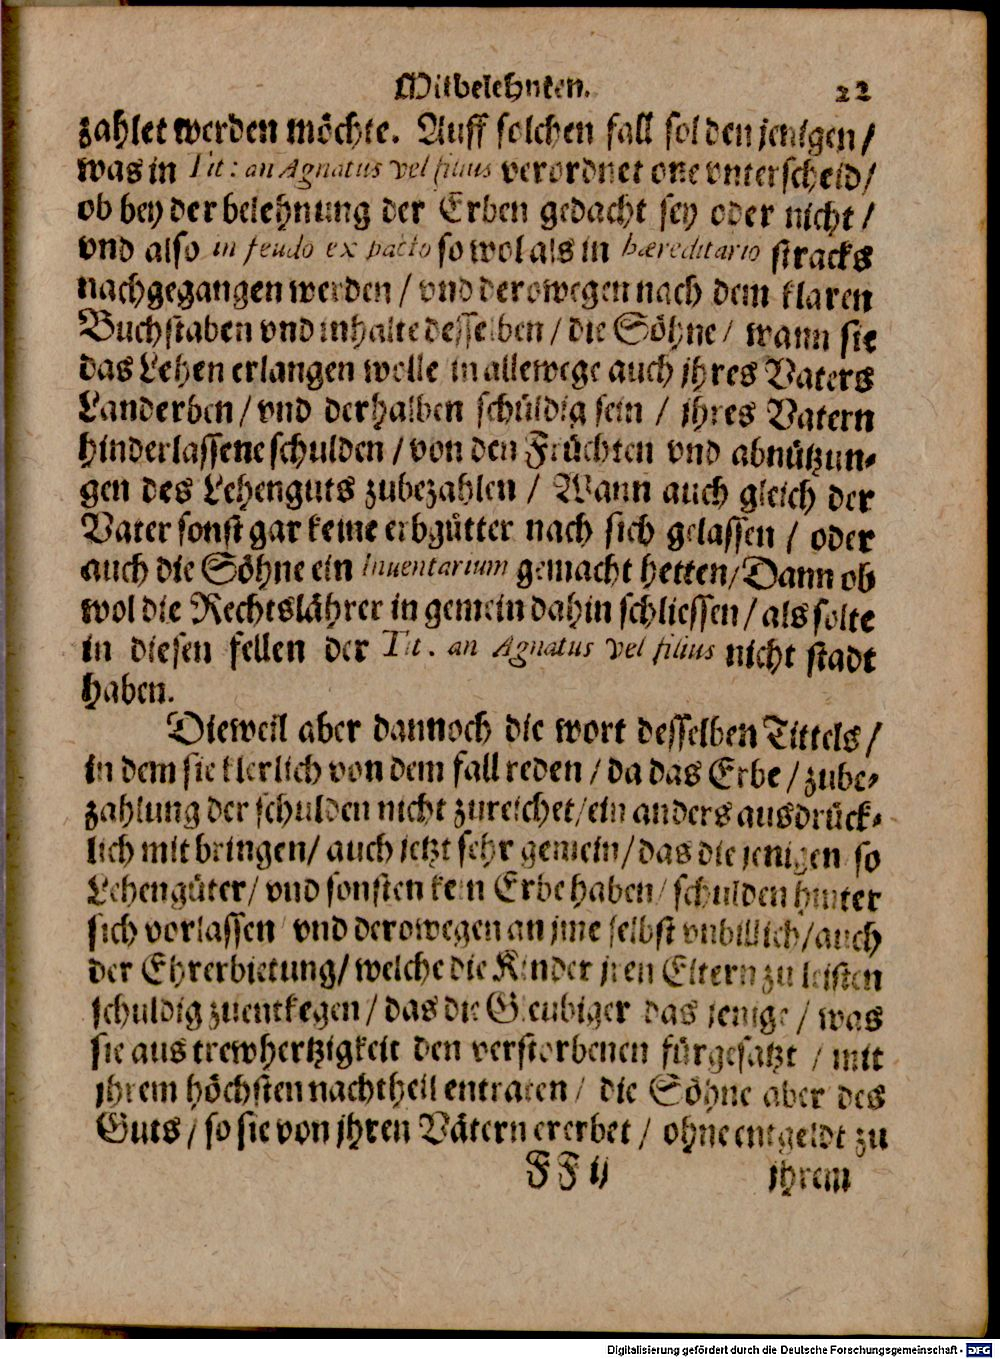 Mitbelehnten. 22
zahlet werden möchte. Auff solchen fall sol den jenigen /
was in Tit: an Agnatus vel filius verordnet one vnterscheid /
ob bey der belehnung der Erben gedacht sey oder nicht /
vnd also in feudo ex pacto so wol als in hæreditario stracks
nachgegangen werden / vnd derowegen nach dem klaren
Buchstaben vnd inhalte desselben / die Söhne / wann sie
das Lehen erlangen wolle in allewege auch jhres Vaters
Landerben / vnd derhalben schüldig sein / jhres Vatern
hinderlassene schulden / von den Früchten vnd abnützun-
gen des Lehenguts zubezahlen / Wann auch gleich der
Vater sonst gar keine erbgütter nach sich gelassen / oder
auch die Söhne ein inuentarium gemacht hetten / Dann ob
wol die Rechtslährer in gemein dahin schliessen / als solte
in diesen fellen der Tit. an Agnatus vel filius nicht stadt
haben.
Dieweil aber dannoch die wort desselben Tittels /
in dem sie klerlich von dem fall reden / da das Erbe / zube-
zahlung der schulden nicht zureichet / ein anders ausdrück-
lich mit bringen / auch jetzt sehr gemein / das die jenigen so
Lehengüter / vnd sonsten kein Erbe haben / schulden hinter
sich vorlassen / vnd derowegen an jme selbst vnbillich / auch
der Ehrerbietung / welche die Kinder jren Eltern zu leisten
schuldig zuentkegen / das die Gleubiger das jenige / was
sie aus trewhertzigkeit den verstorbenen fürgesatzt / mit
jhrem höchsten nachtheil entraten / die Söhne aber des
Guts / so sie von jhren Vätern ererbet / ohne entgeldt zu
FF ij jhrem
Digitalisierung gefördert durch die Deutsche Forschungsgemeinschaft - DFG